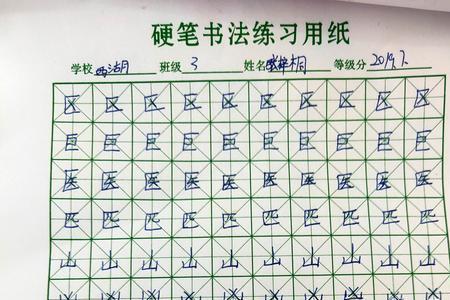 硬笔书法练习用纸
学校 西湖 班级 3 姓名 桐 等级分 2019.7.
区 区 区 区 区 区 区 区 区 区
巨 巨 巨 巨 巨 巨 巨 巨 巨 巨
医 医 医 医 医 医 医 医 医 医
匹 匹 匹 匹 匹 匹 匹 匹 匹 匹
山 山 山 山 山 山 山 山 山 山